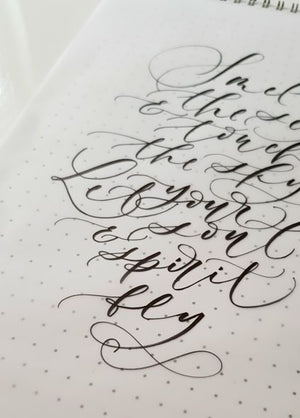 Smel
the se
& touch
the sky
Let your
& soul
& spirit
fly